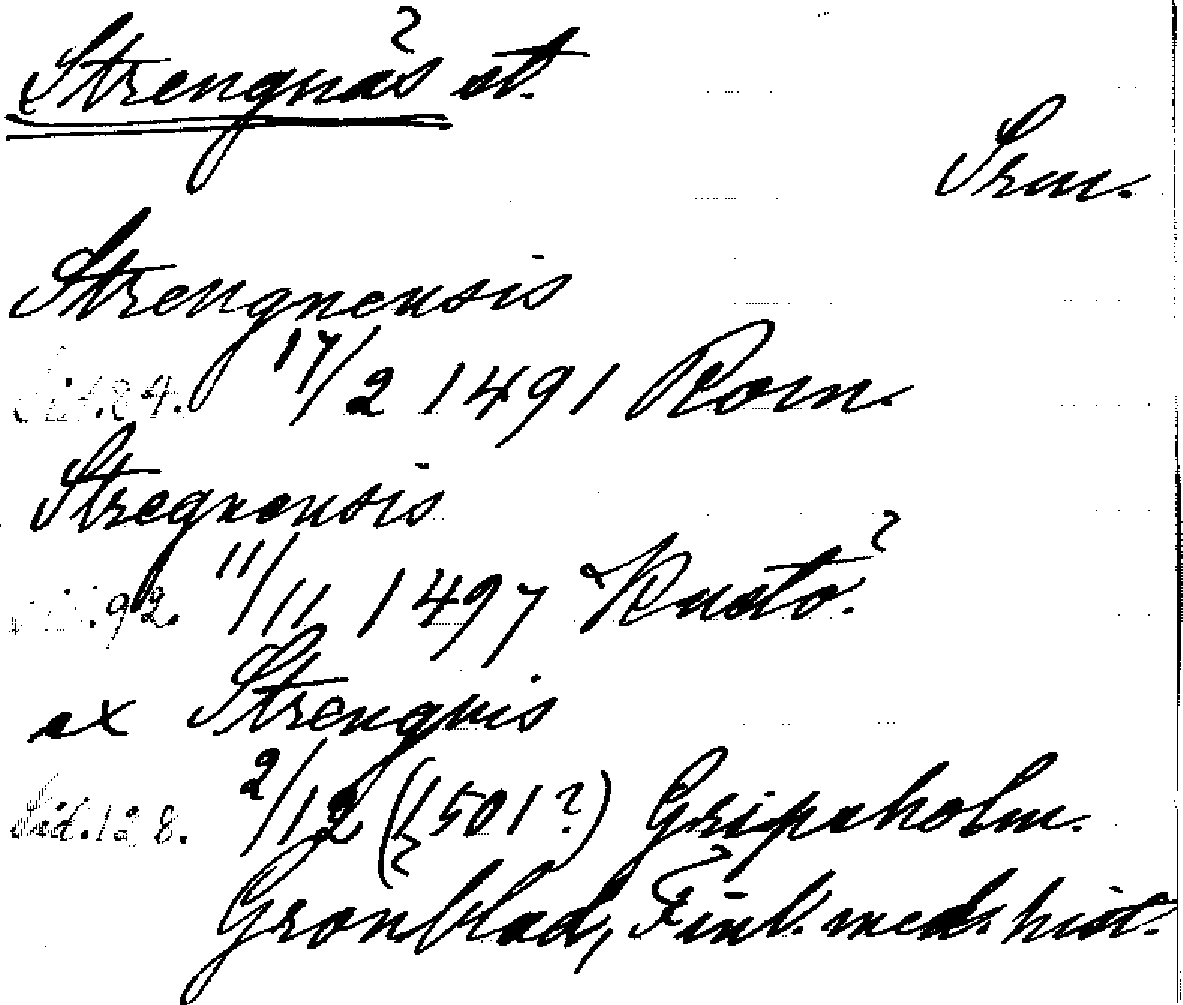 Strengnäs st.
Srm.
Strengnensis
Sid. 84. 17/2 1491 Rom.
Stregnensis
Sid. 92. 11/11 1497 Kustö.
ex Strengnis
Sid. 128. 2/12 (1501?) Gripsholm.
Grönblad, Finl. med. hist.